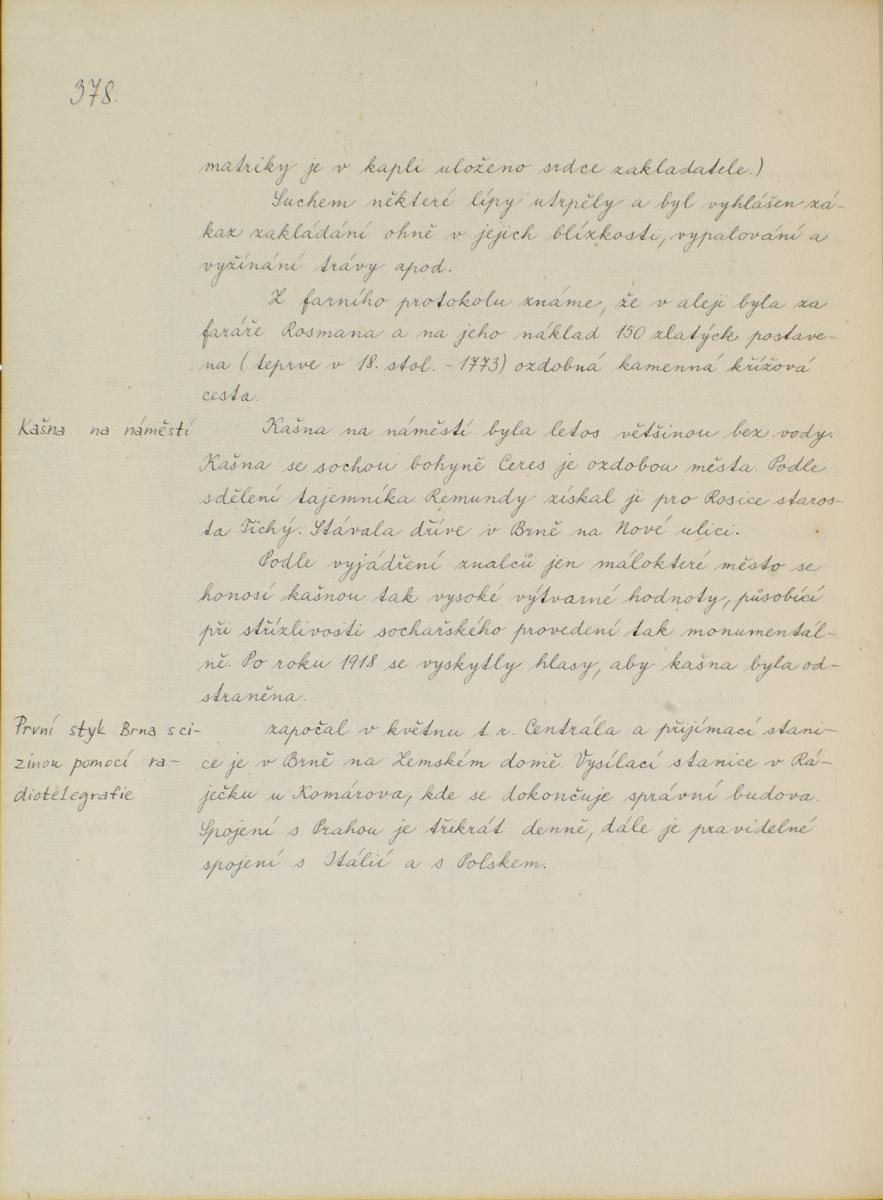 378.
matriky je v kapli uloženo srdce zakladatele.)
Suchem některé lípy utrpěly a byl vyhlášen zá-
kaz zakládání ohně v jejich blízkosti, vypalování a
vyžínání trávy apod.
Z farního protokolu známe, že v aleji byla za
faráře Rosmana a na jeho náklad 150 zlatých postave-
na (teprve v 18. stol. - 1773) ozdobná kamenná křížová
cesta.
Kašna na náměstí
Kašna na náměstí byla letos většinou bez vody.
Kašna se sochou bohyně Ceres je ozdobou města. Podle
sdělení tajemníka Remundy získal ji pro Rosice staros-
ta Tichý. Stávala dříve v Brně na Nové ulici.
Podle vyjádření znalců jen málokteré město se
honosí kašnou tak vysoké výtvarné hodnoty, působící
při střízlivosti sochařského provedení tak monumentál-
ně. Po roku 1918 se vyskytly hlasy, aby kašna byla od-
straněna.
První styk Brna s ci-
zinou pomocí ra-
diotelegrafie
započal v květnu t. r. Centrála a přijímací stani-
ce je v Brně na Zemském domě. Vysílací stanice v Rá-
ječku u Komárova, kde se dokončuje správní budova.
Spojení s Prahou je třikrát denně, dále je pravidelné
spojení s Itálií a s Polskem.